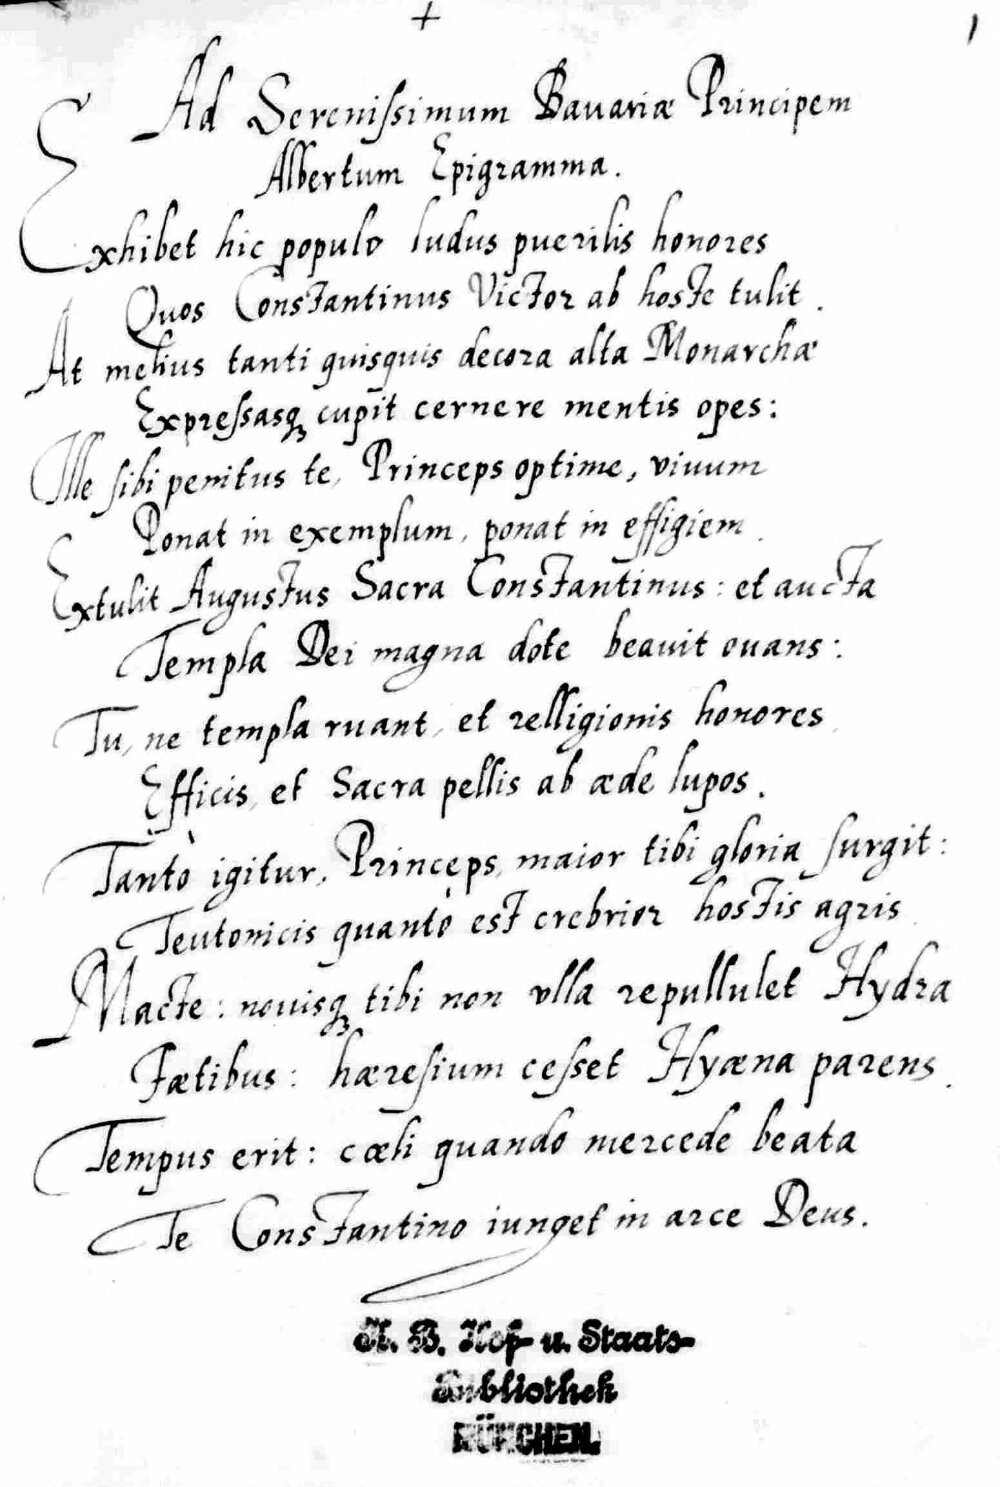 + 1
Ad Serenissimum Bavariæ Principem
Albertum Epigramma.
Exhibet hic populo ludus puerilis honores
Quos Constantinus Victor ab hoste tulit.
At melius tanti quisquis decora alta Monarchæ
Expressasq cupit cernere mentis opes:
Ille sibi penitus te, Princeps optime, vivum
Ponat in exemplum, ponat in effigiem.
Extulit Augustus Sacra Constantinus: et aucta
Templa Dei magna dote beavit ovans:
Tu, ne templa ruant, et relligionis honores,
Efficis, et Sacra pellis ab æde lupos.
Tantò igitur, Princeps, maior tibi gloria surgit:
Teutonicis quantò est crebrior hostis agris.
Macte: novisq tibi non ulla repullulet Hydra
Fætibus: hæresium cesset Hyæna parens.
Tempus erit: cæli quando mercede beata
Te Constantino iunget in arce Deus.
K. B. Hof- u. Staats-
Bibliothek
MÜNCHEN.